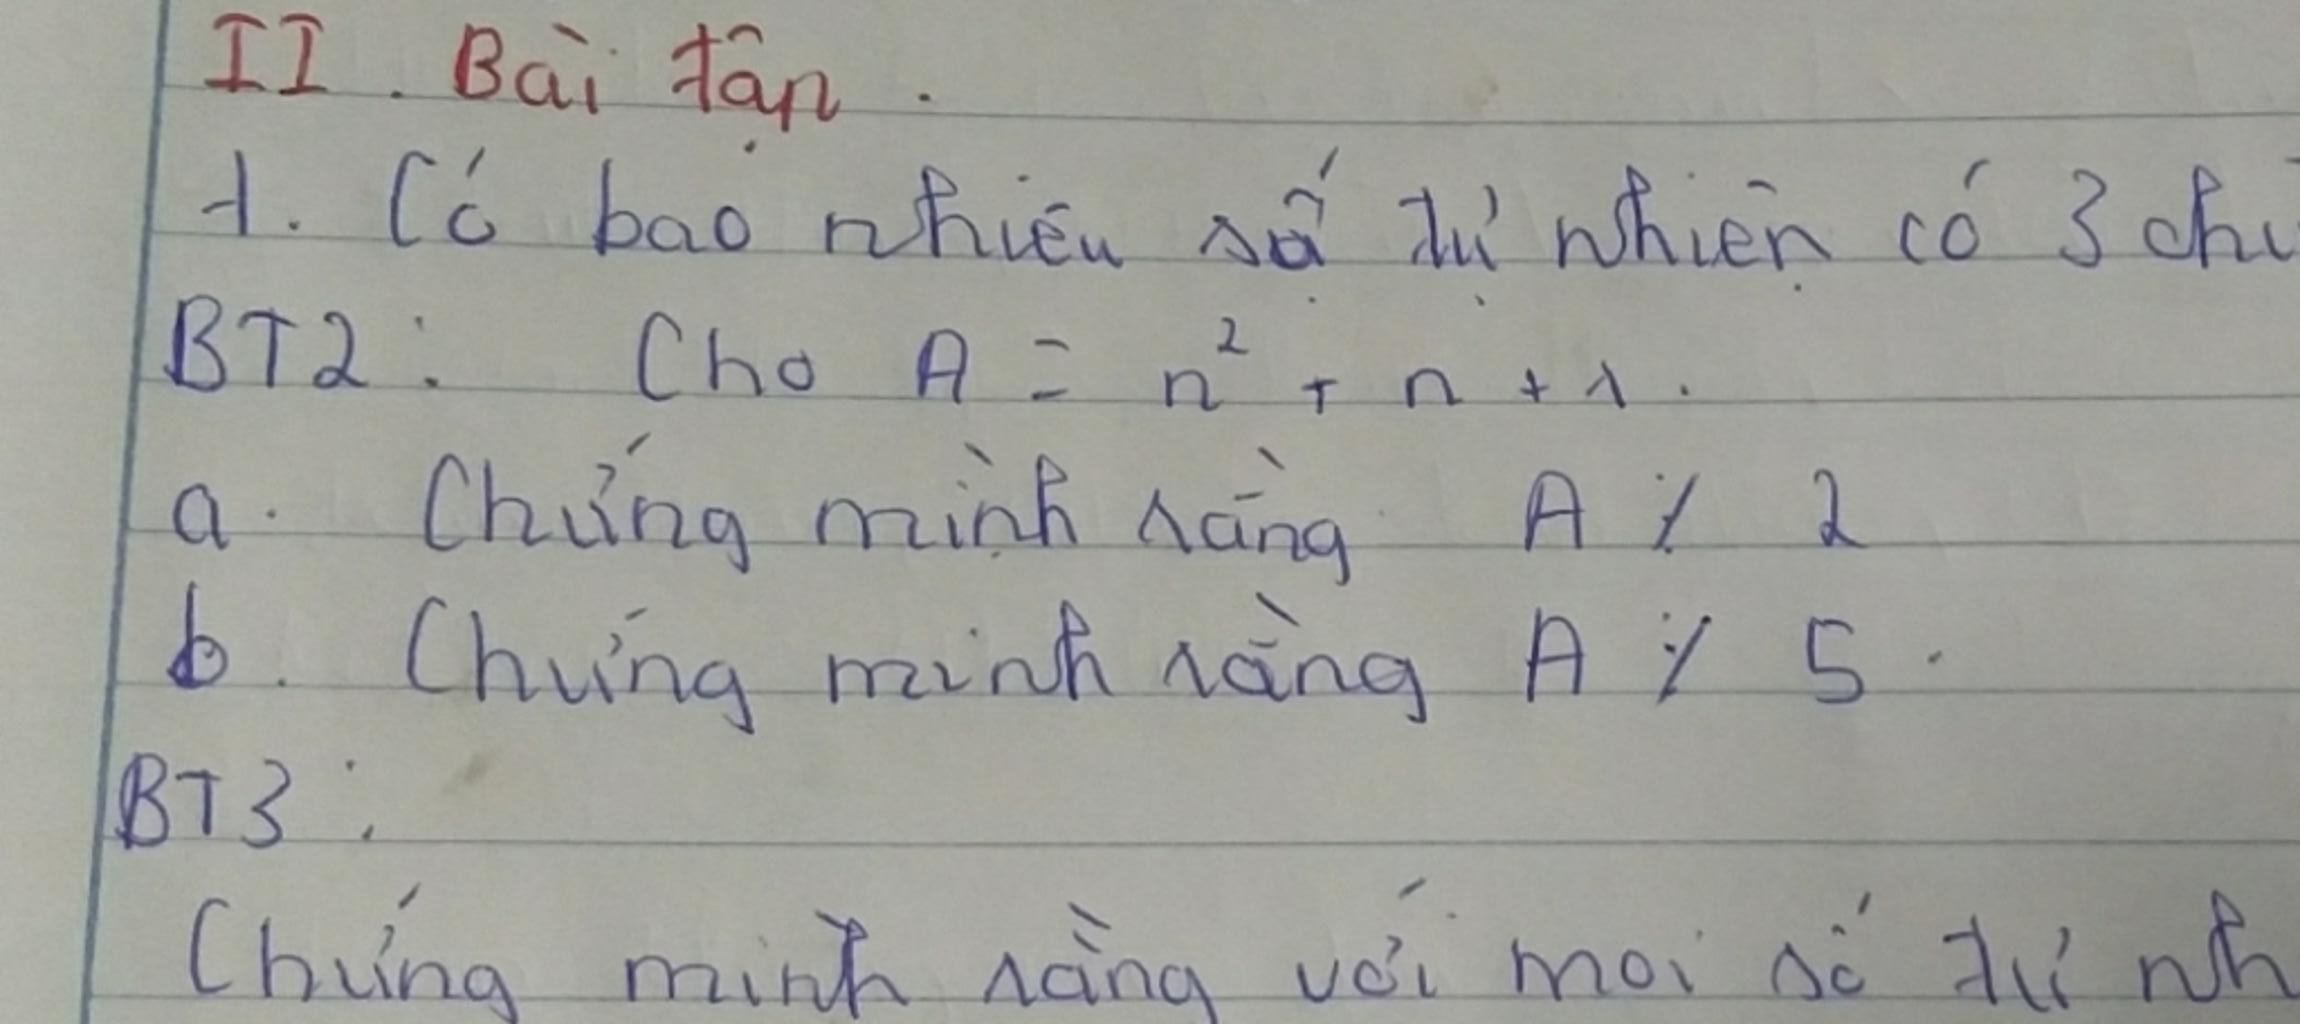 II. Bài tập.
1. Có bao nhiêu số tự nhiên có 3 chữ
BT2: Cho A = n² + n + 1.
a. Chứng minh rằng A ⋮̸ 2
b. Chứng minh rằng A ⋮̸ 5.
BT3:
Chứng minh rằng với mọi số tự nh